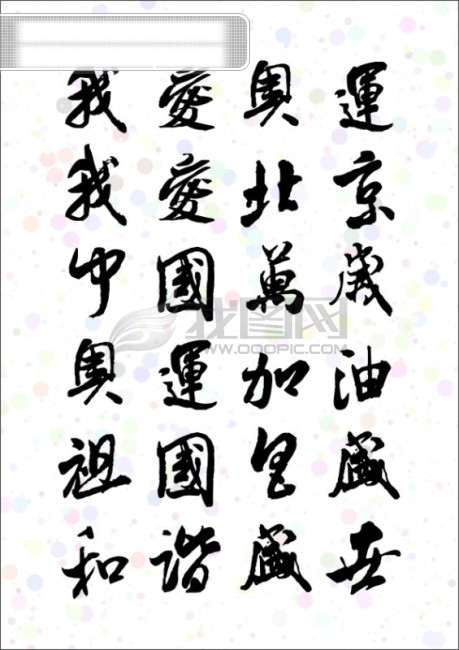 我愛奧運
我愛北京
中國萬歲
奧運加油
祖國昌盛
和諧盛世
找图网
WWW.OOOPIC.COM